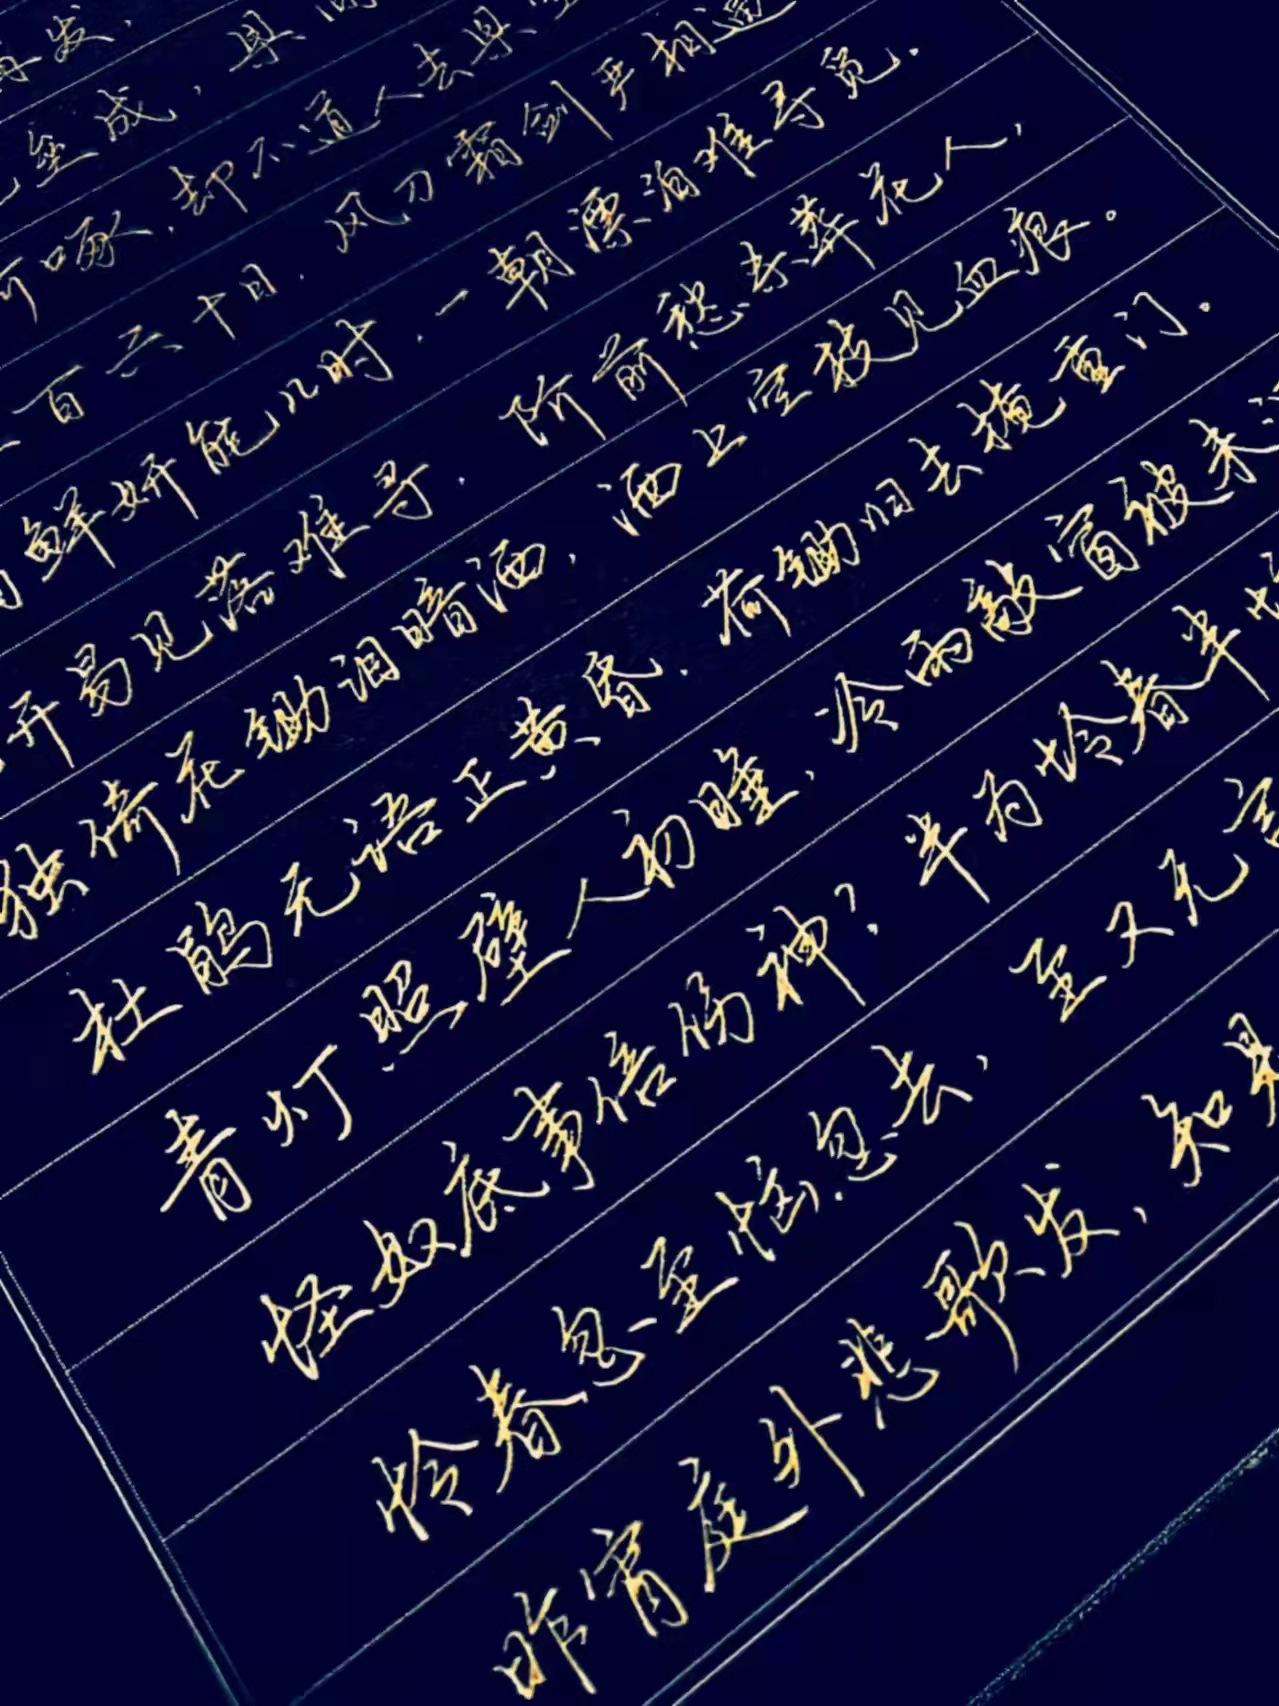 再发,
垒成,
可啄,却不道人去
百六十日,风刀霜剑严相逼
鲜妍能几时,一朝漂泊难寻觅.
开易见落难寻,阶前愁杀葬花人,
独倚花锄泪暗洒,洒上空枝见血痕。
杜鹃无语正黄昏,荷锄归去掩重门。
青灯照壁人初睡,冷雨敲窗被未
怪奴底事倍伤神?半为怜春半
怜春忽至恼忽去,至又无
昨宵庭外悲歌发,知是